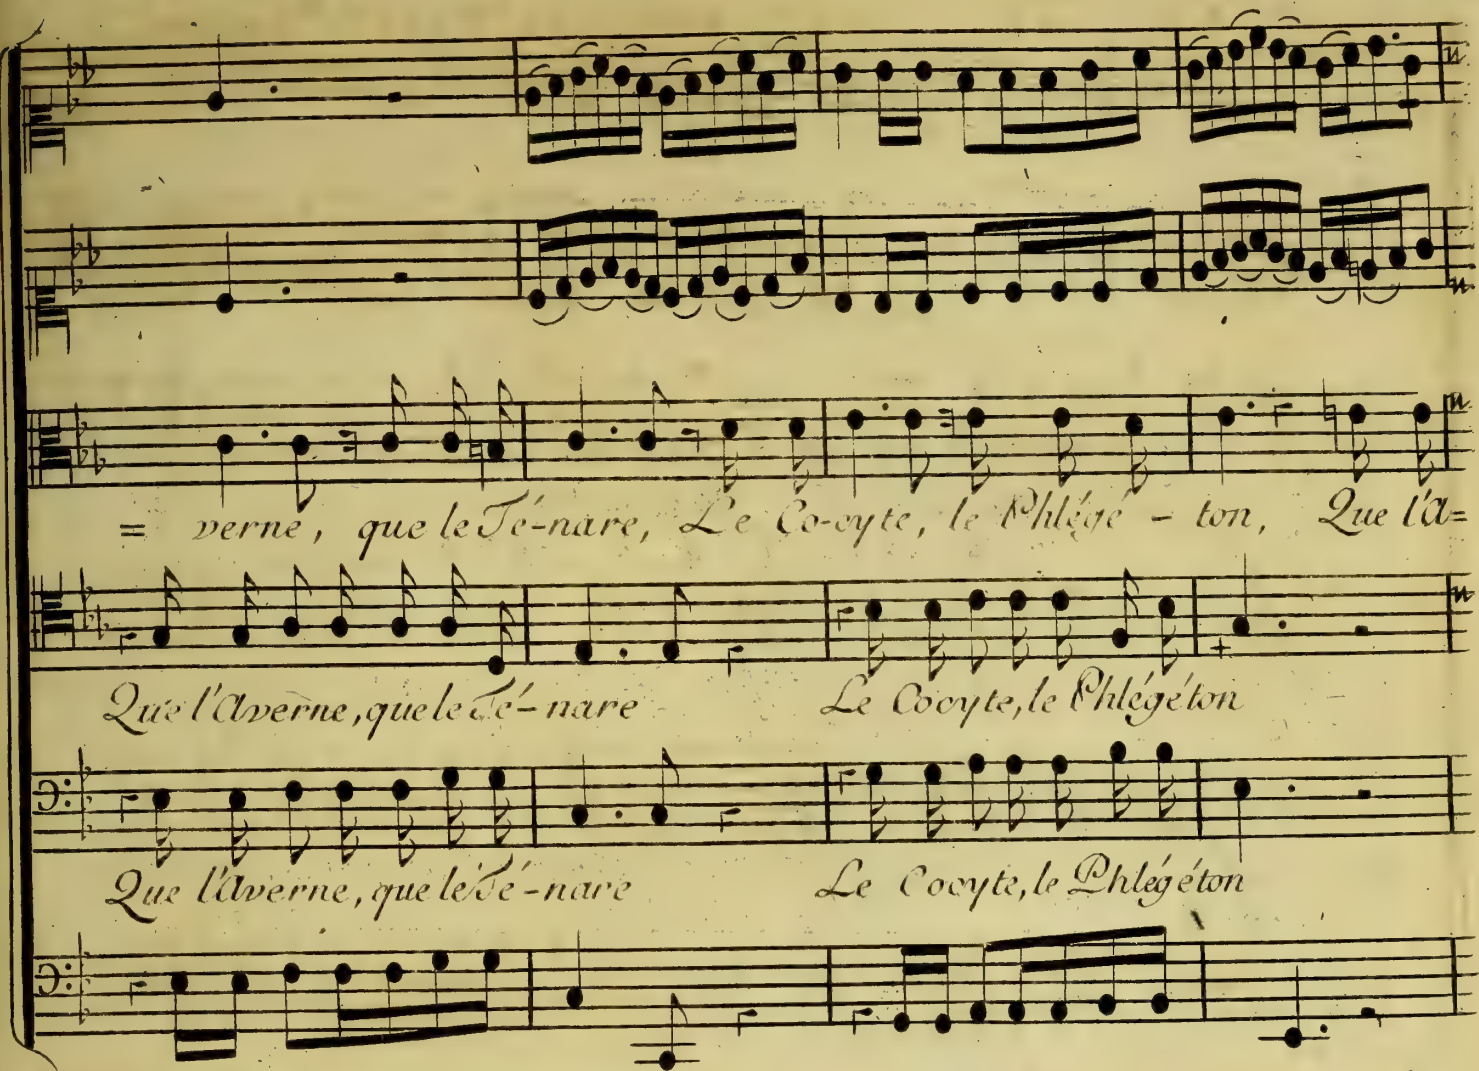 = verne, que le Té-nare, Le Cocyte, le Phlégé - ton, Que l'A=
Que l'Averne, que le Té-nare Le Cocyte, le Phlégéton
Que l'Averne, que le Té-nare Le Cocyte, le Phlégéton